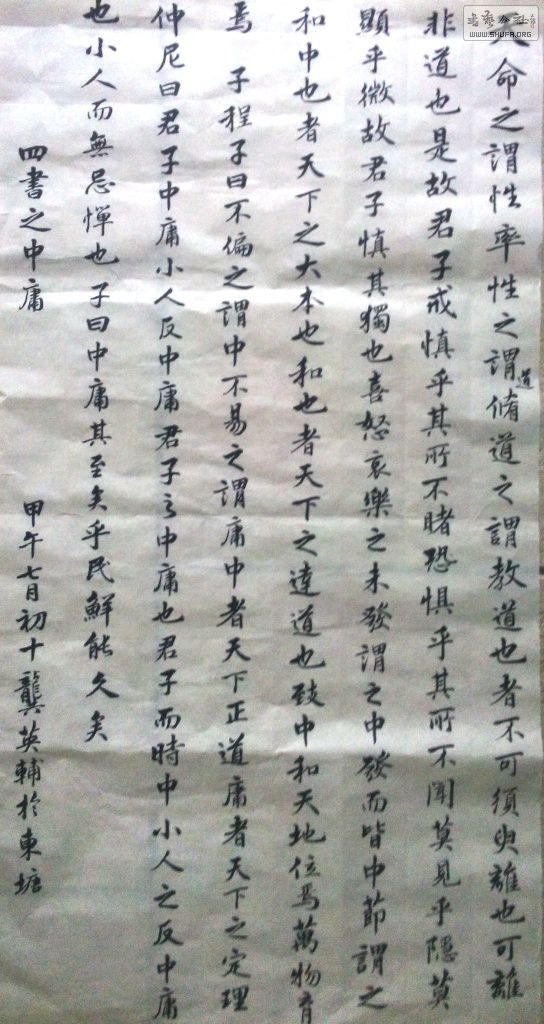 天命之謂性率性之謂道脩道之謂教道也者不可須臾離也可離
非道也是故君子戒慎乎其所不睹恐懼乎其所不聞莫見乎隱莫
顯乎微故君子慎其獨也喜怒哀樂之未發謂之中發而皆中節謂之
和中也者天下之大本也和也者天下之達道也致中和天地位焉萬物育
焉 子程子曰不偏之謂中不易之謂庸中者天下正道庸者天下之定理
仲尼曰君子中庸小人反中庸君子之中庸也君子而時中小人之反中庸
也小人而無忌憚也子曰中庸其至矣乎民鮮能久矣
四書之中庸 甲午七月初十龔英輔於東塘
WWW.SHUFA.ORG